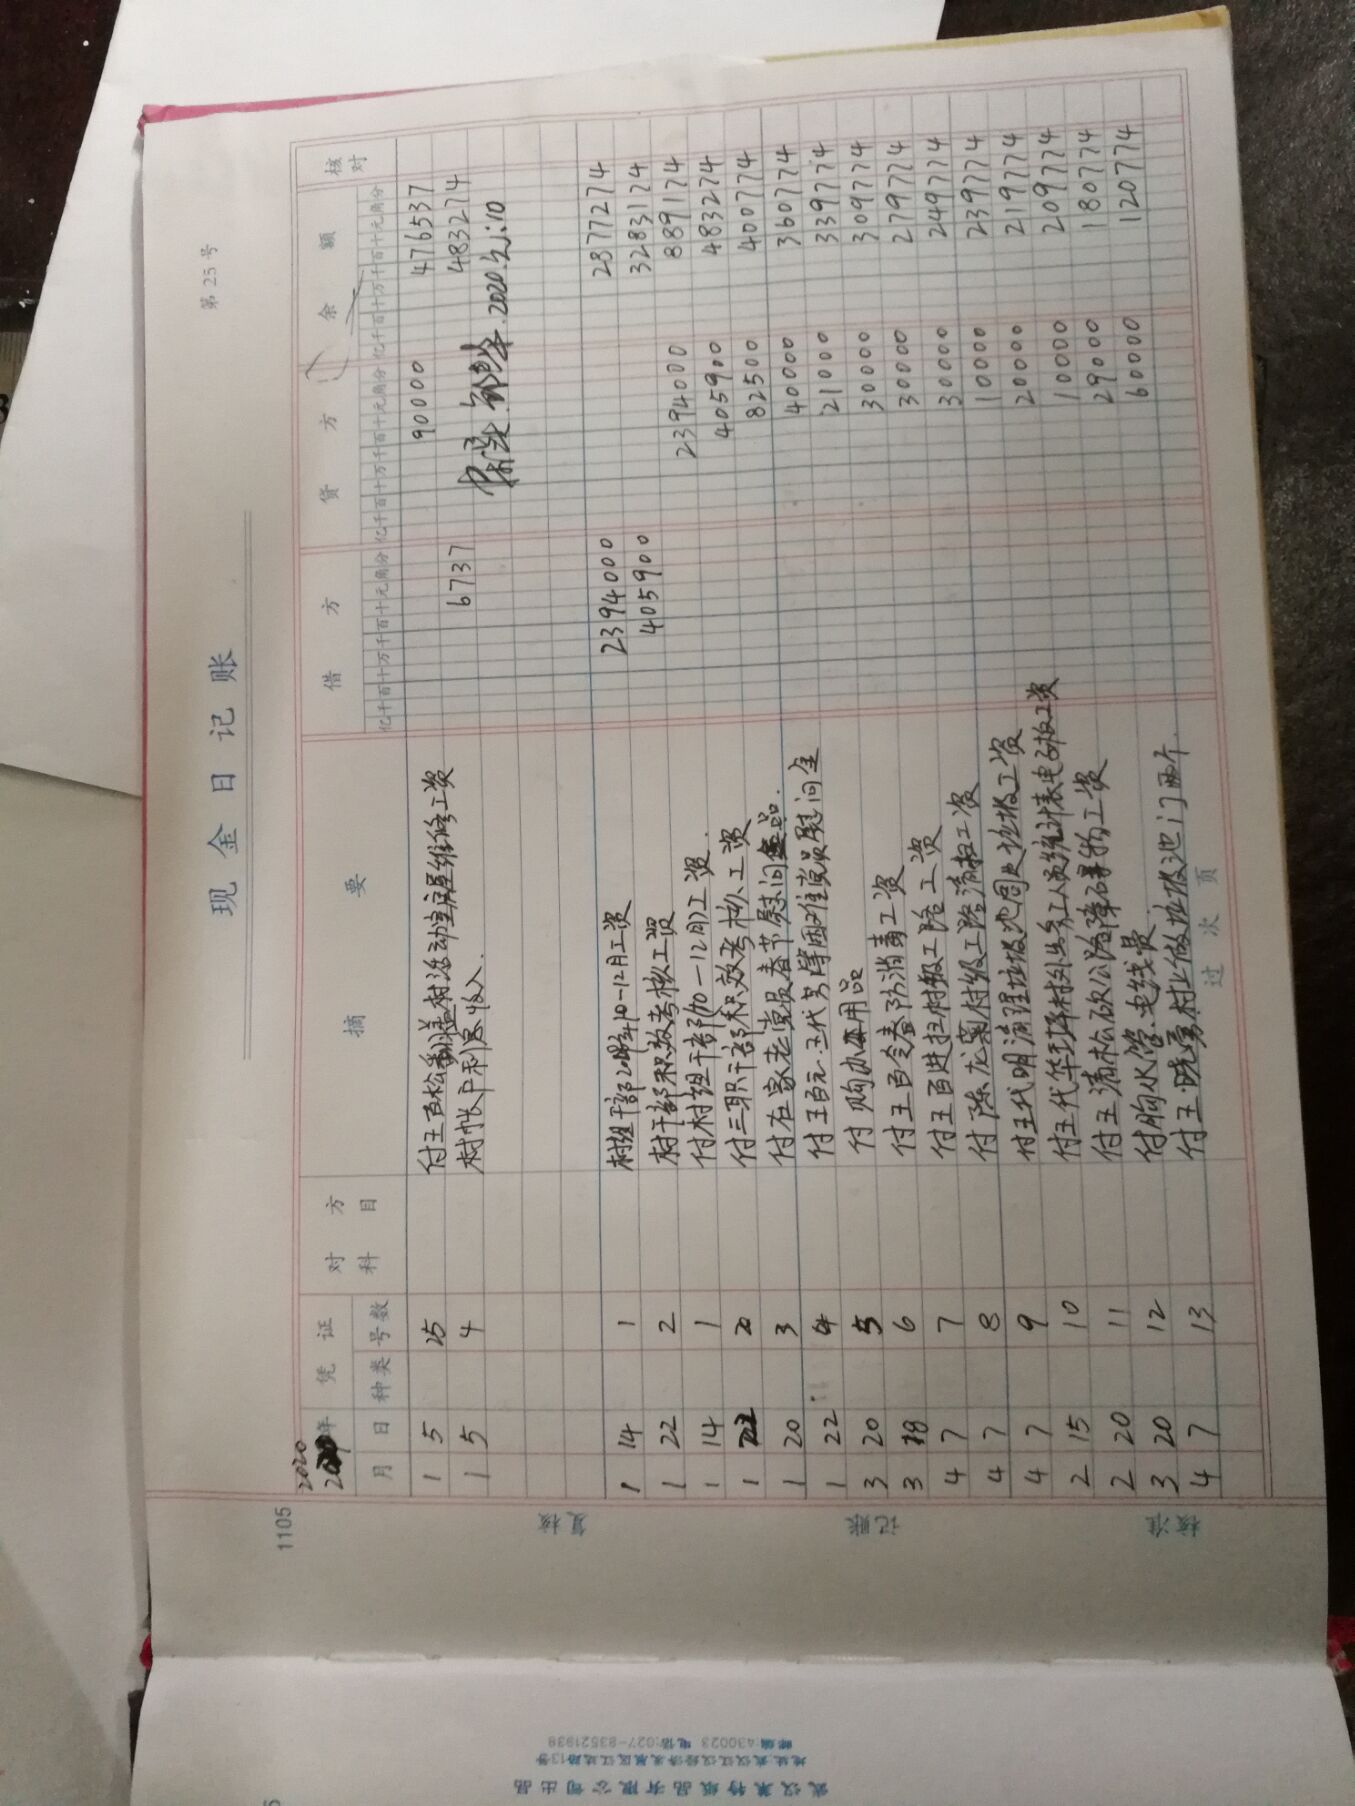 1105
第 25 号
现金日记账
2020
年 凭证 对方 摘要 借方 贷方 余额 核对
月 日 种类 号数 科目 亿千百十万千百十元角分 亿千百十万千百十元角分 亿千百十万千百十元角分
1 5 25 付王百松 村活动室房屋维修工资 90000 476537
1 5 4 村帐户利息收入. 6737 483274
2020.1.10
1 14 1 村组干部 10-12月工资 2394000 2877274
1 22 2 村干部积效考核工资 405900 3283174
1 14 1 付村组干部10-12月工资. 2394000 889174
1 付三职干部积效考核工资 405900 483274
1 20 3 付在家老党员春节慰问品. 82500 400774
1 22 4 付王百元.王代芳等困难党员慰问金 40000 360774
3 20 5 付购办公用品 21000 339774
3 18 6 付王百令春防消毒工资 30000 309774
4 7 7 付王百进扫村级公路工资 30000 279774
4 7 8 付陈龙菊村级公路清扫工资 30000 249774
4 7 9 付王代明清理垃圾池周边垃圾工资 10000 239774
2 15 10 付王代华 村外务工人员统计表 工资 20000 219774
2 20 11 付王清松砍公路障碍物工资 10000 209774
3 20 12 付购水管.电线费 29000 180774
4 7 13 付王晓勇村上做垃圾池门两个. 60000 120774
过次页
复核
记账
核准
武汉莱特纸品有限公司出品
邮编:430023 电话:027-83521938